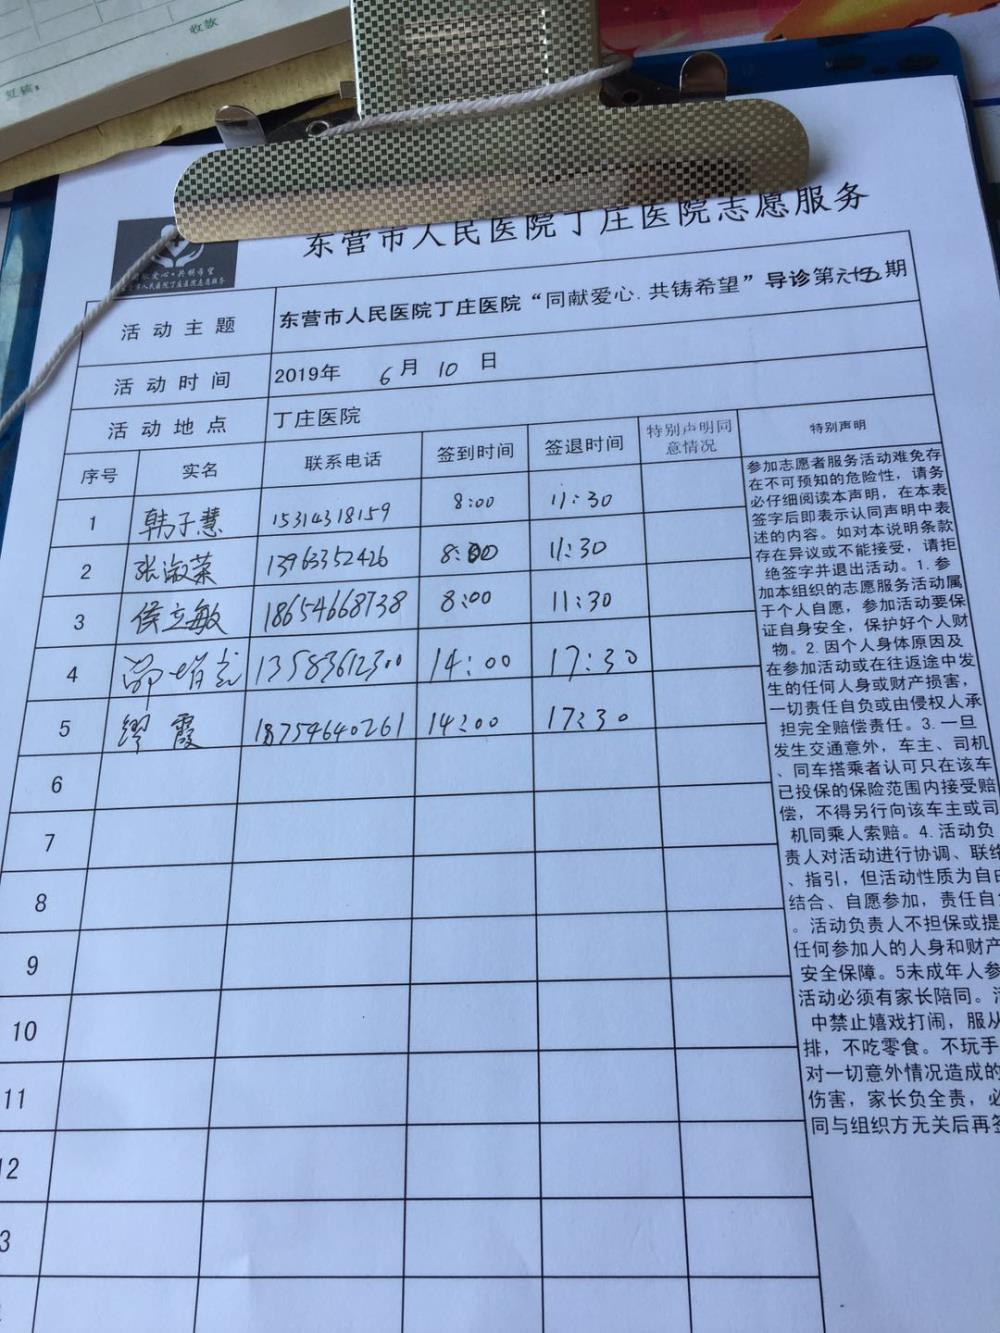 收款
东营市人民医院丁庄医院志愿服务
爱心·共铸希望
市人民医院丁庄医院志愿服务
活动主题 东营市人民医院丁庄医院“同献爱心.共铸希望”导诊第 期
活动时间 2019年 6月 10日
活动地点 丁庄医院
序号 实名 联系电话 签到时间 签退时间 特别声明同意情况 特别声明
1 韩子慧 15314318159 8:00 11:30
2 张淑荣 13963352426 8:00 11:30
3 侯立敏 18654668738 8:00 11:30
4 13583612300 14:00 17:30
5 缪霞 18754640261 14:00 17:30
6
7
8
9
10
11
12
3
参加志愿者服务活动难免存
在不可预知的危险性，请务
必仔细阅读本声明，在本表
签字后即表示认同声明中表
述的内容。如对本说明条款
存在异议或不能接受，请拒
绝签字并退出活动。1.参
加本组织的志愿服务活动属
于个人自愿，参加活动要保
证自身安全，保护好个人财
物。2.因个人身体原因及
在参加活动或在往返途中发
生的任何人身或财产损害，
一切责任自负或由侵权人承
担完全赔偿责任。3.一旦
发生交通意外，车主、司机
、同车搭乘者认可只在该车
已投保的保险范围内接受赔
偿，不得另行向该车主或司
机同乘人索赔。4.活动负
责人对活动进行协调、联络
、指引，但活动性质为自由
结合、自愿参加，责任自负
。活动负责人不担保或提
任何参加人的人身和财产
安全保障。5未成年人参
活动必须有家长陪同。活
中禁止嬉戏打闹，服从
排，不吃零食。不玩手
对一切意外情况造成的
伤害，家长负全责，必
同与组织方无关后再签